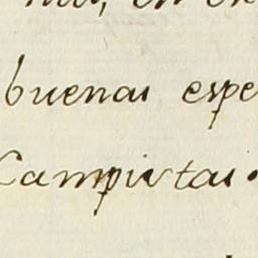 buenas espe
Campistas.